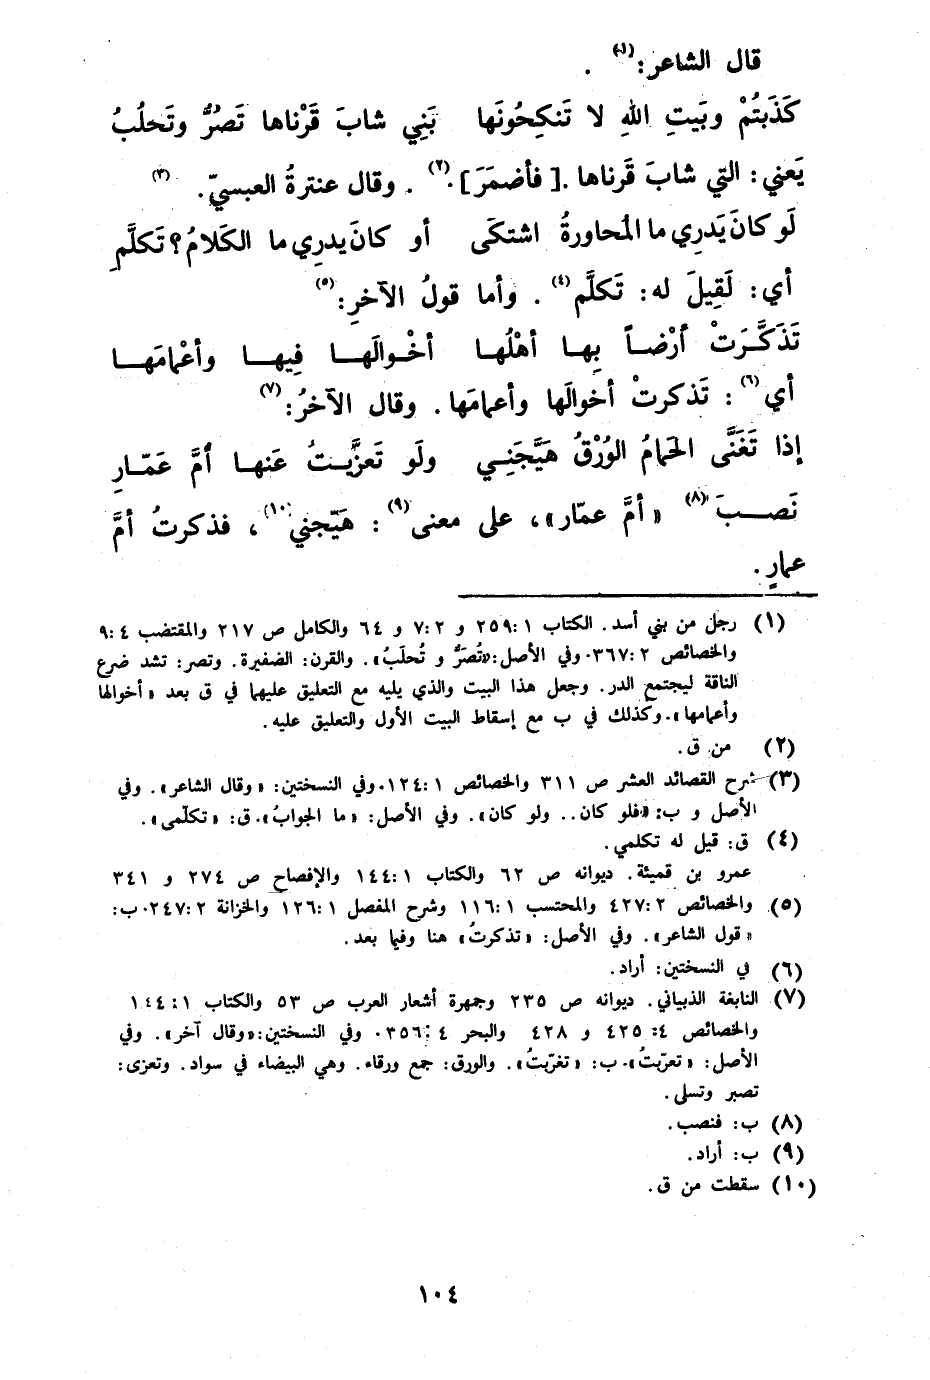 قال الشاعر:(١) .
كَذَبتُمْ وبَيتِ اللهِ لا تَنكِحُونَها    بَنِي شابَ قَرْناها تَصُرُّ وتَحلُبُ
يَعني: التي شابَ قَرناها .[ فأضمَرَ ].(٢) . وقال عنترةُ العبسيّ.(٣)
لَو كانَ يَدرِي ما المُحاورةُ اشتكَى    أو كانَ يدرِي ما الكَلامُ؟ تَكلَّمِ
أي: لَقِيلَ له: تَكلَّم(٤) . وأما قولُ الآخرِ:(٥)
تَذَكَّرَتْ أرْضاً بِها أهْلُها    أخْوالَها فِيها وأعْمامَها
أي(٦) : تَذكرتْ أخوالَها وأعمامَها. وقال الآخرُ:(٧)
إذا تَغَنَّى الحَمامُ الوُرْقُ هَيَّجَنِي    ولَو تَعزَّيتُ عَنها أمَّ عَمّارِ
نَصبَ(٨) « أمَّ عمّار»، على معنى(٩) : هَيّجني(١٠)، فذكرتُ أمَّ
عمارٍ.
(١) رجل من بني أسد. الكتاب ١:‏٢٥٩ و ٢:‏٧ و ٦٤ والكامل ص ٢١٧ والمقتضب ٤:‏٩
والخصائص ٢:‏٣٦٧. وفي الأصل:«تُصَرُّ و تُحلَبُ». والقرن: الضفيرة. وتصر: تشد ضرع
الناقة ليجتمع الدر. وجعل هذا البيت والذي يليه مع التعليق عليهما في ق بعد « أخوالها
وأعمامها ». وكذلك في ب مع إسقاط البيت الأول والتعليق عليه.
(٢) من ق.
(٣) شرح القصائد العشر ص ٣١١ والخصائص ١:‏١٢٤. وفي النسختين: « وقال الشاعر ». وفي
الأصل و ب: «فلو كان.. ولو كان». وفي الأصل: « ما الجوابُ». ق: « تكلّمى».
(٤) ق: قيل له تكلمي.
عمرو بن قميئة. ديوانه ص ٦٢ والكتاب ١:‏١٤٤ والإفصاح ص ٢٧٤ و ٣٤١
(٥) والخصائص ٢:‏٤٢٧ والمحتسب ١:‏١١٦ وشرح المفصل ١:‏١٢٦ والخزانة ٢:‏٢٤٧. ب:
« قول الشاعر». وفي الأصل: « تذكرتُ» هنا وفيما بعد.
(٦) في النسختين: أراد.
(٧) النابغة الذبياني. ديوانه ص ٢٣٥ وجمهرة أشعار العرب ص ٥٣ والكتاب ١:‏١٤٤
والخصائص ٤:‏ ٤٢٥ و ٤٢٨ والبحر ٤:‏٣٥٦. وفي النسختين:«وقال آخر». وفي
الأصل: « تعرّبتُ». ب: « تغرّبتُ». والورق: جمع ورقاء. وهي البيضاء في سواد. وتعزى:
تصبر وتسلى.
(٨) ب: فنصب.
(٩) ب: أراد.
(١٠) سقطت من ق.
١٠٤